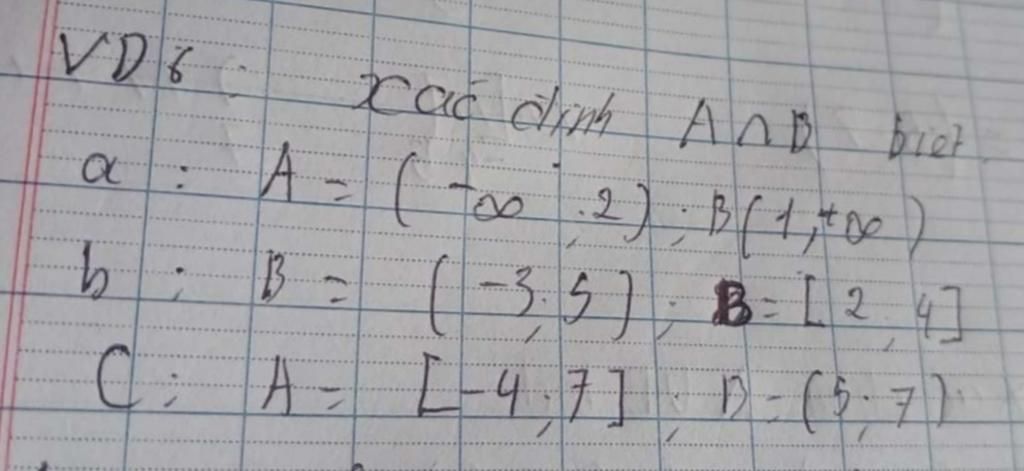 VD6: Xác định A∩B biet
a: A = (-∞; 2); B(1; +∞)
b: B = (-3; 5); B = [2; 4]
C: A = [-4; 7]; B = (5; 7).